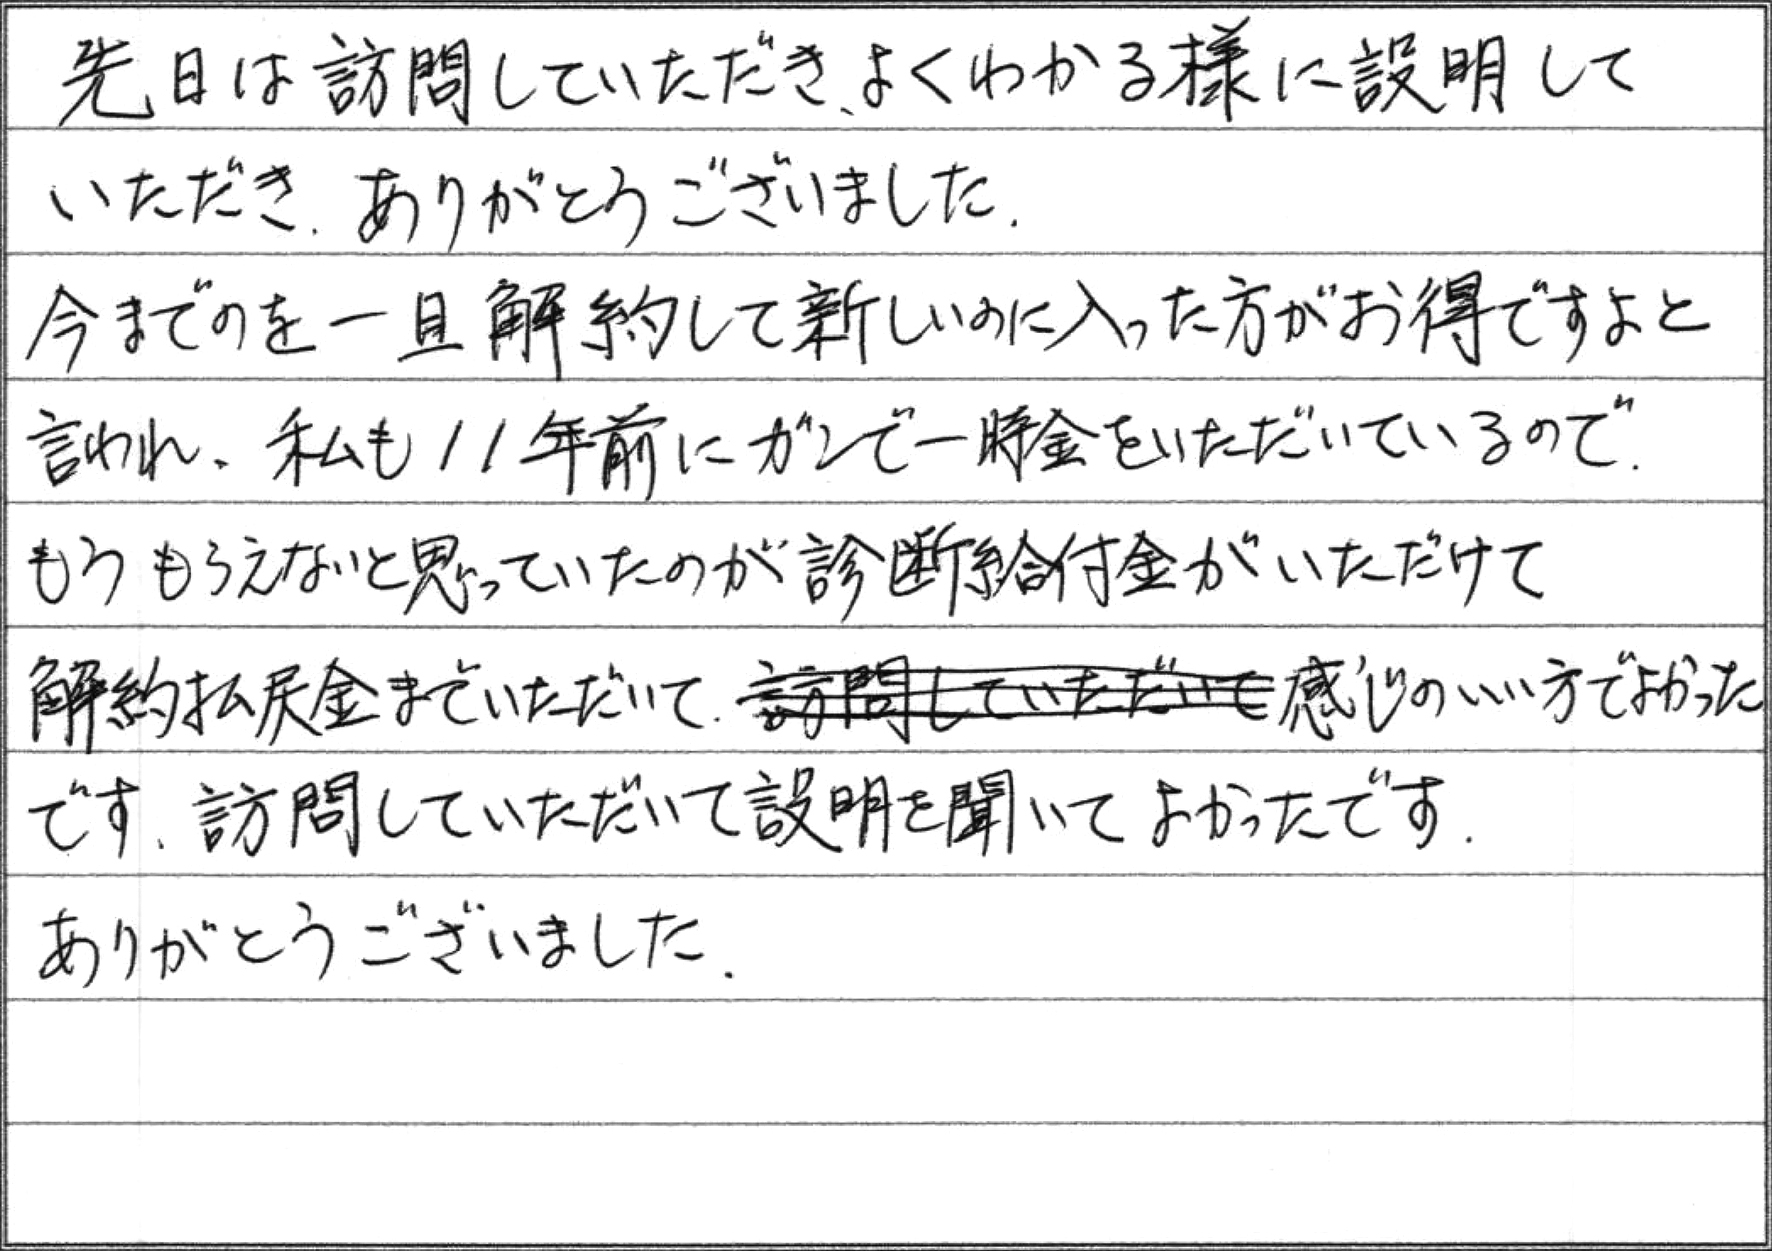 先日は訪問していただき、よくわかる様に設明して
いただき、ありがとうございました.
今までのを一旦解約して新しいのに入った方がお得ですよと
言われ、私も11年前にガンで一時金をいただいているので.
もうもらえないと思っていたのが診断給付金がいただけて
解約払戻金までいただいて、訪問していただいて感じのいい方でよかった
です. 訪問していただいて設明を聞いてよかったです.
ありがとうございました.